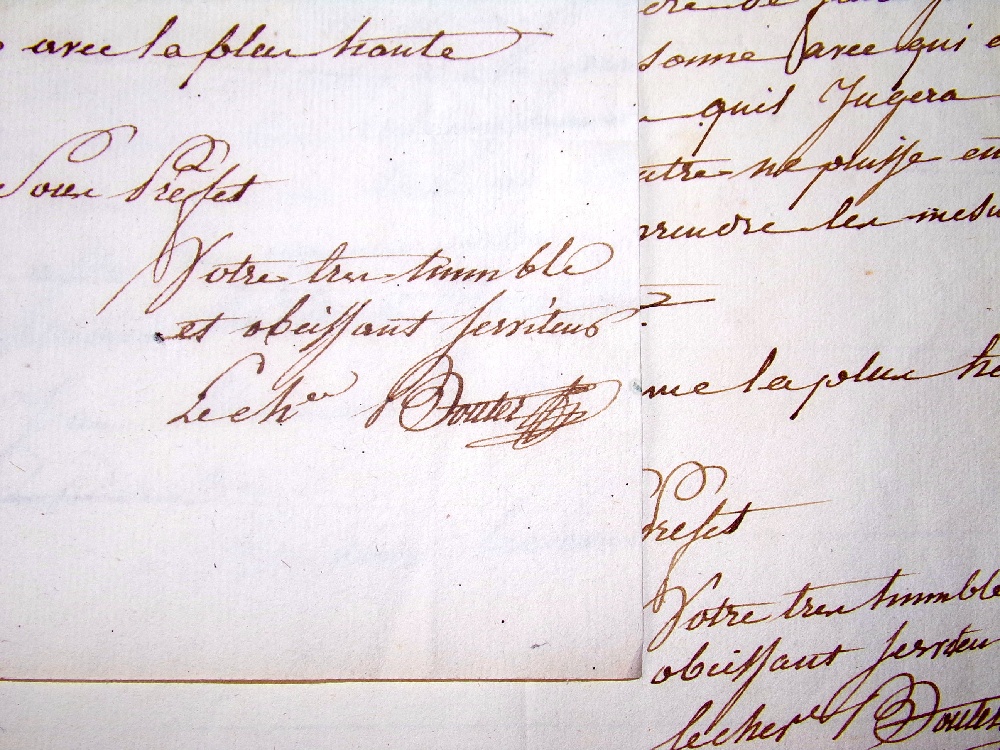 avec la plus haute
Sous Préfet
Votre tres humble
et obeissant serviteur
Le ch.er Boutet
sonne avec qui
quil Jugera
ne puisse en
les mesu
me la plus ha
Prefet
Votre tres humble
obeissant serviteur
le cher.e Boutet